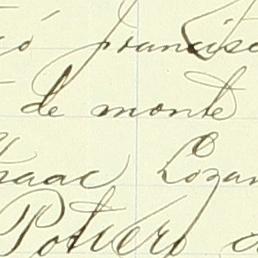 ió Francisc
de monte
Isaac Lozan
Potrero d